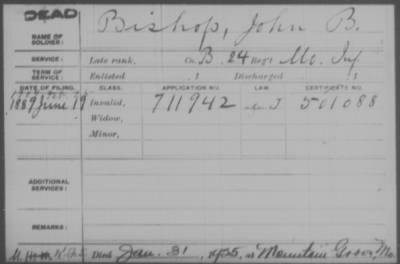 DEAD
NAME OF SOLDIER: Bishop, John B.
SERVICE: Late rank, Co. B, 24 Reg't Mo. Inf
TERM OF SERVICE: Enlisted , 1 Discharged , 1
DATE OF FILING. CLASS. APPLICATION NO. LAW. CERTIFICATE NO.
1889 June 19 Invalid, 711942 J 501088
Widow,
Minor,
ADDITIONAL SERVICES:
REMARKS:
Died Jan. 31, at Mountain Grove, Mo